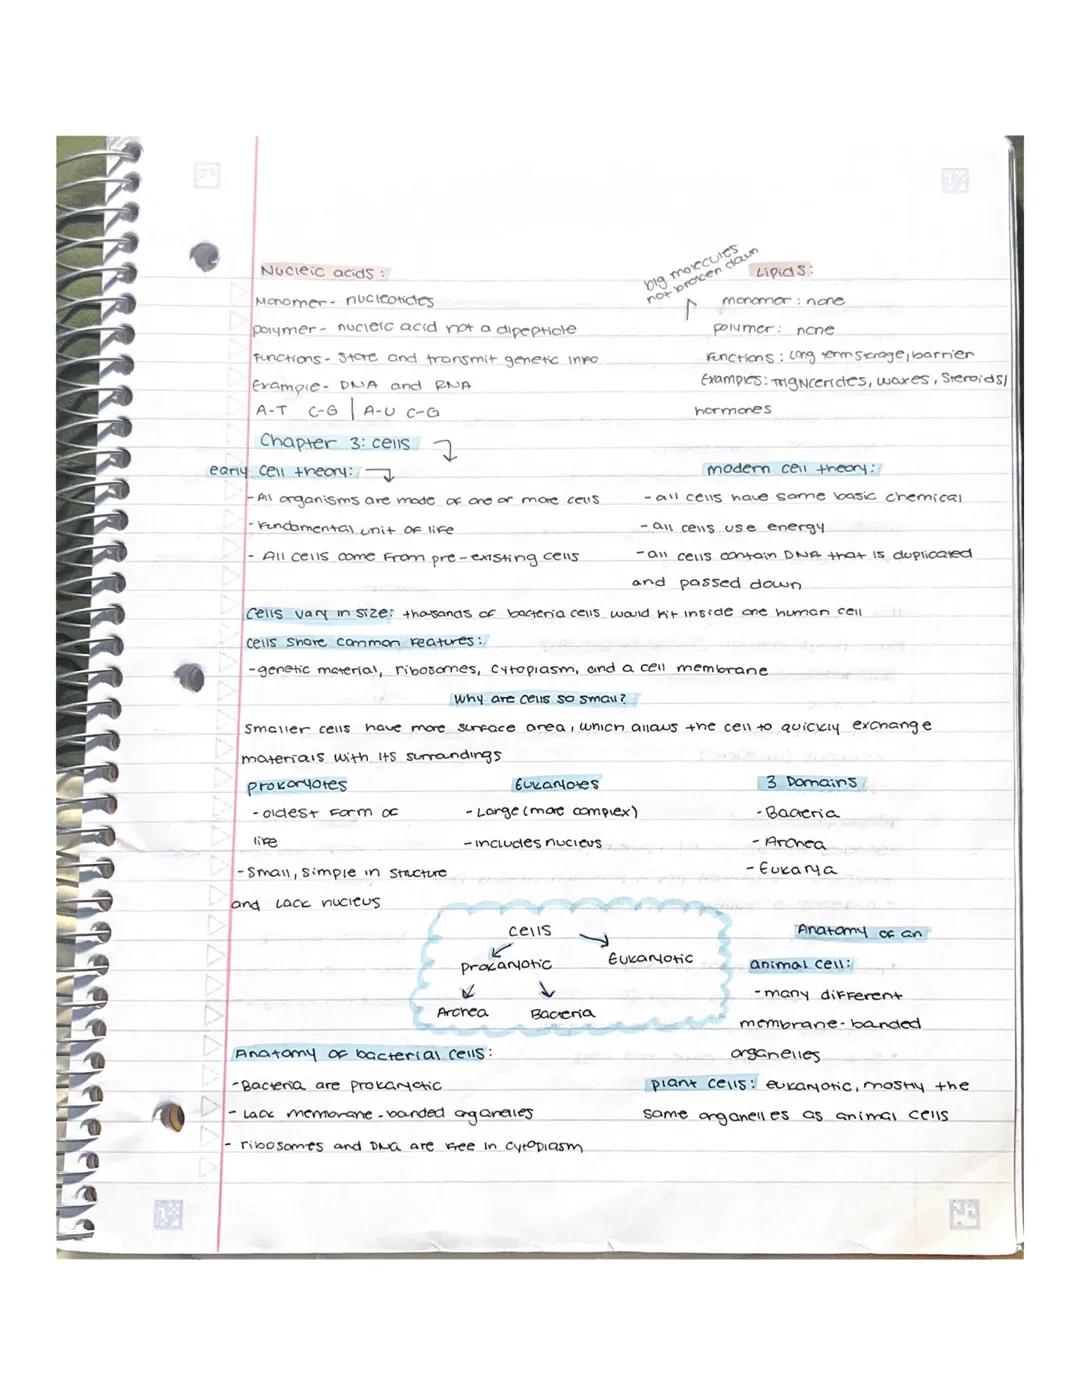 Nucleic acids:
Monomer- nucleotides
polymer- nucleic acid not a dipeptide
Functions- Store and transmit genetic info
Example- DNA and RNA
A-T C-G | A-U C-G
big molecules
not broken down
Lipids:
monomer: none
polymer: none
Functions: Long term storage, barrier
Examples: Triglycerides, waxes, Steroids/
hormones
Chapter 3: cells
early cell theory:
-All organisms are made of one or more cells
-Fundamental unit of life
- All cells come from pre-existing cells
modern cell theory:
-all cells have same basic chemical
-all cells use energy
-all cells contain DNA that is duplicated
and passed down
Cells vary in size: thousands of bacteria cells would fit inside one human cell
cells share common features:
-genetic material, ribosomes, cytoplasm, and a cell membrane
Why are cells so small?
Smaller cells have more surface area, which allows the cell to quickly exchange
materials with its surrondings
prokaryotes
-oldest form of
life
-Small, Simple in structure
and lack nucleus
Eukaryotes
-Large (more complex)
-includes nucleus
3 Domains
-Bacteria
-Archea
-Eukarya
cells
prokaryotic
Eukaryotic
Archea
Bacteria
Anatomy of an
animal cell:
-many different
membrane-banded
organelles
Anatomy of bacterial cells:
-Bacteria are prokaryotic
-Lack membrane-banded organelles
- ribosomes and DNA are free in cytoplasm
plant cells: eukaryotic, mostly the
same organelles as animal cells